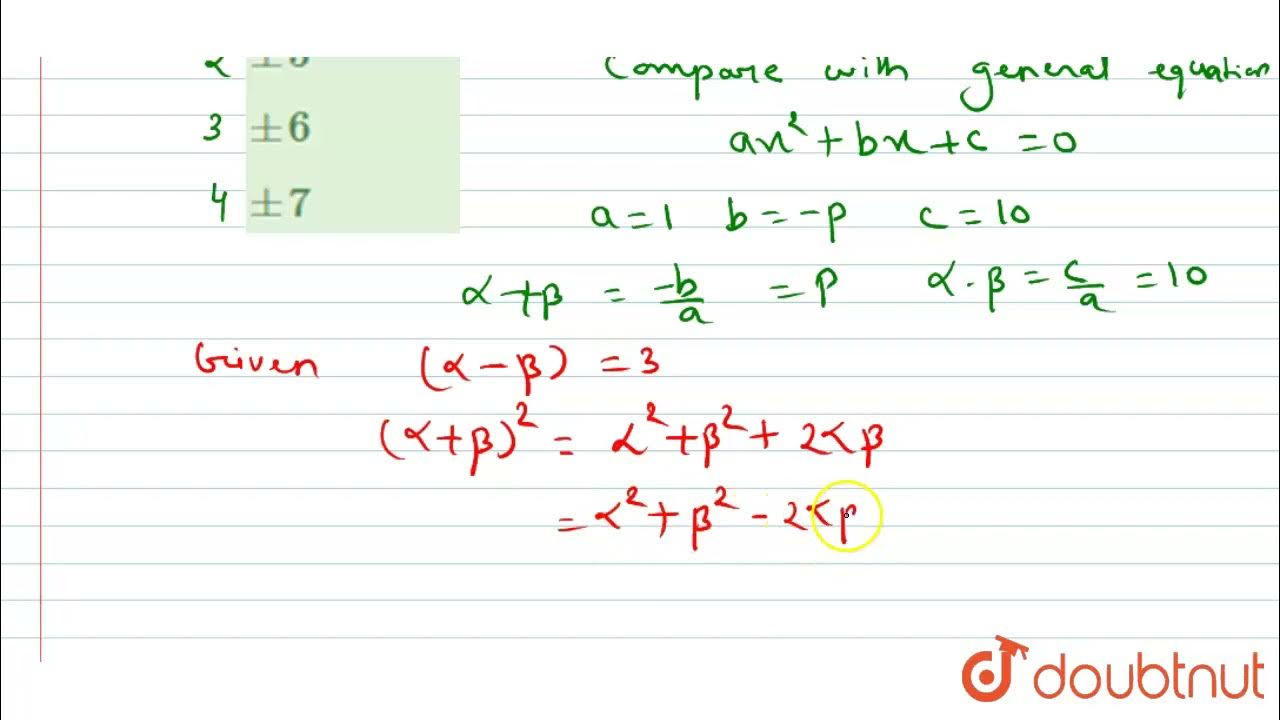 2 ±5
Compare with general equation
3 ±6
ax² + bx + c = 0
4 ±7
a = 1 b = -p c = 10
α + β = -b/a = p α . β = c/a = 10
Given (α - β) = 3
(α + β)² = α² + β² + 2αβ
= α² + β² - 2αβ
doubtnut